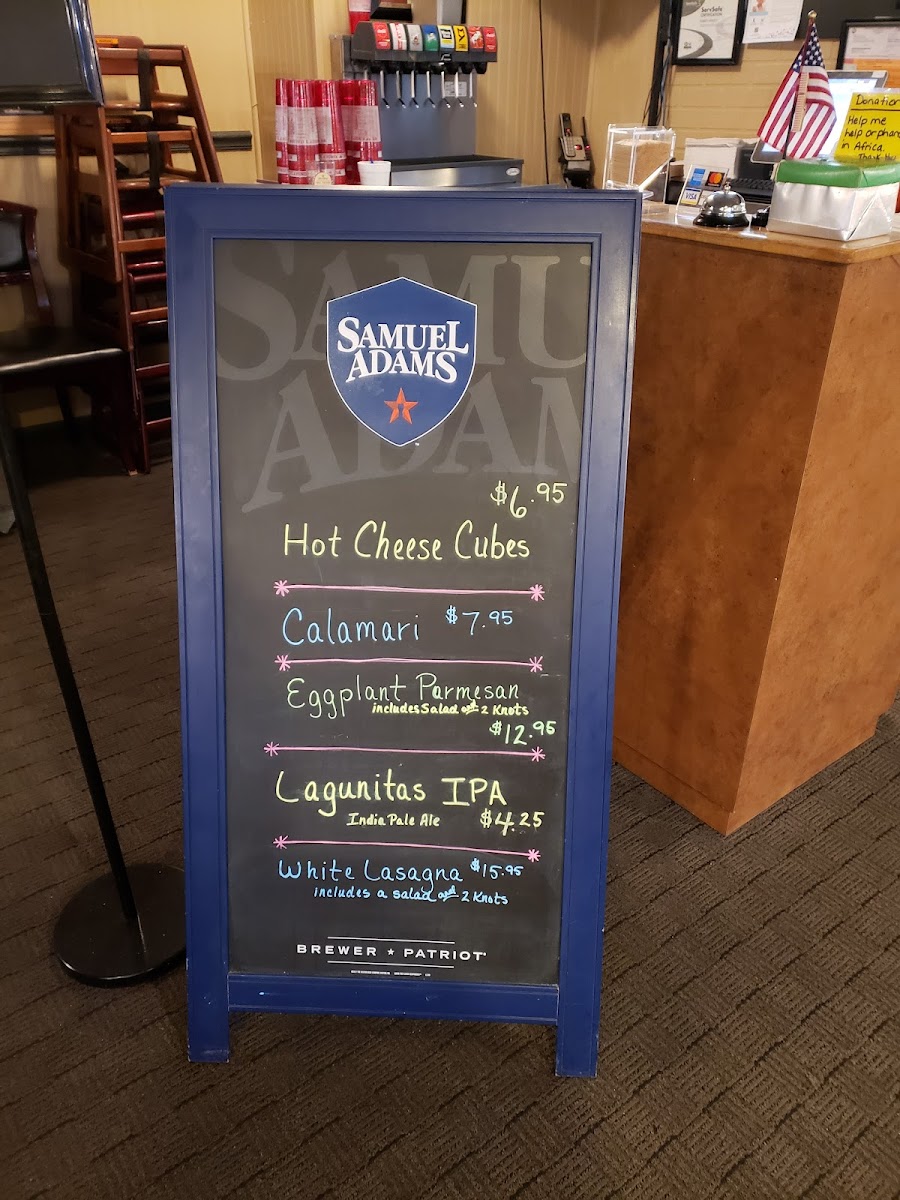 ServSafe
CERTIFICATION
Donation
Help me
help orphans
in Africa.
VISA
SAMUEL
ADAMS
SAMUEL
ADAMS
$6.95
Hot Cheese Cubes
Calamari $7.95
Eggplant Parmesan
includes Salad and 2 Knots
$12.95
Lagunitas IPA
India Pale Ale $4.25
White Lasagna $15.95
includes a salad and 2 Knots
BREWER ★ PATRIOT